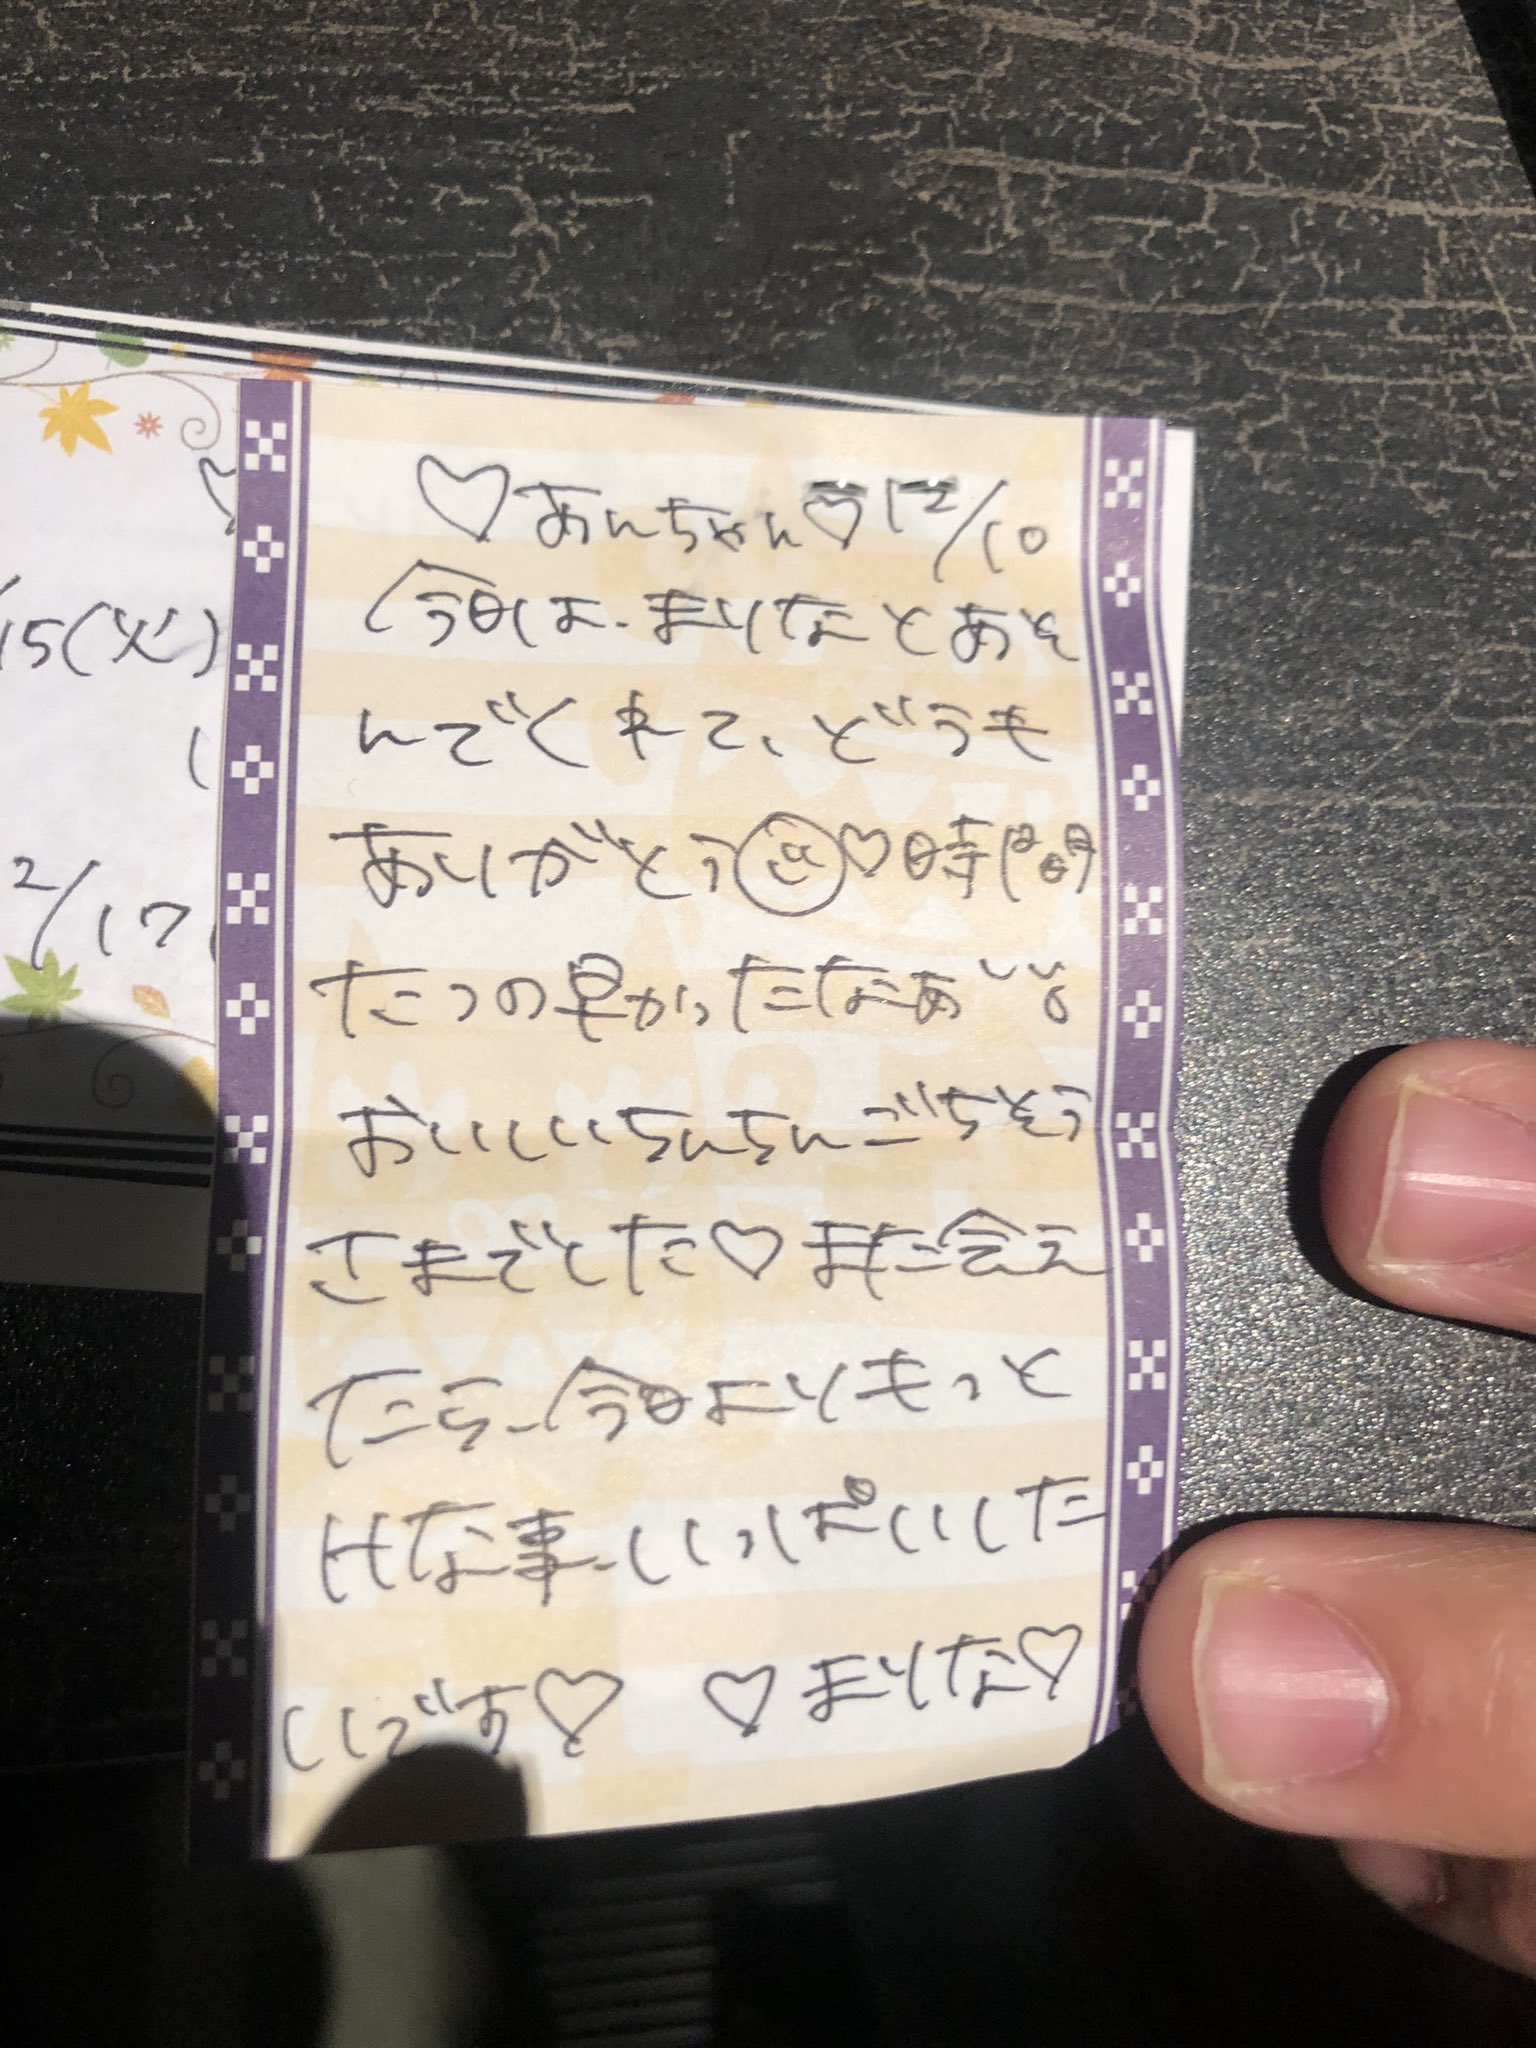 ♡あんちゃん♡12/10
今日は、まりなとあそ
んでくれて、どうも
ありがとう♡時間
たつの早かったなあ
おいしいちんちんごちそう
さまでした♡また会え
たら、今日よりもっと
Hな事、いっぱいした
いです♡ ♡まりな♡
15(火)
2/17